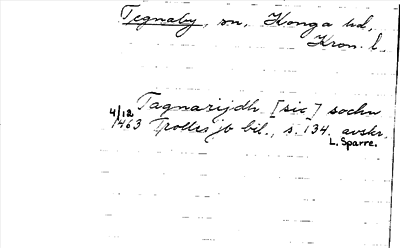 Tegnaby, sn, Konga hd,
Kron. l.
Tagnarijdh [sic] sochn
4/12 1463 Trolles jb bil., s. 134. avskr.
L. Sparre.